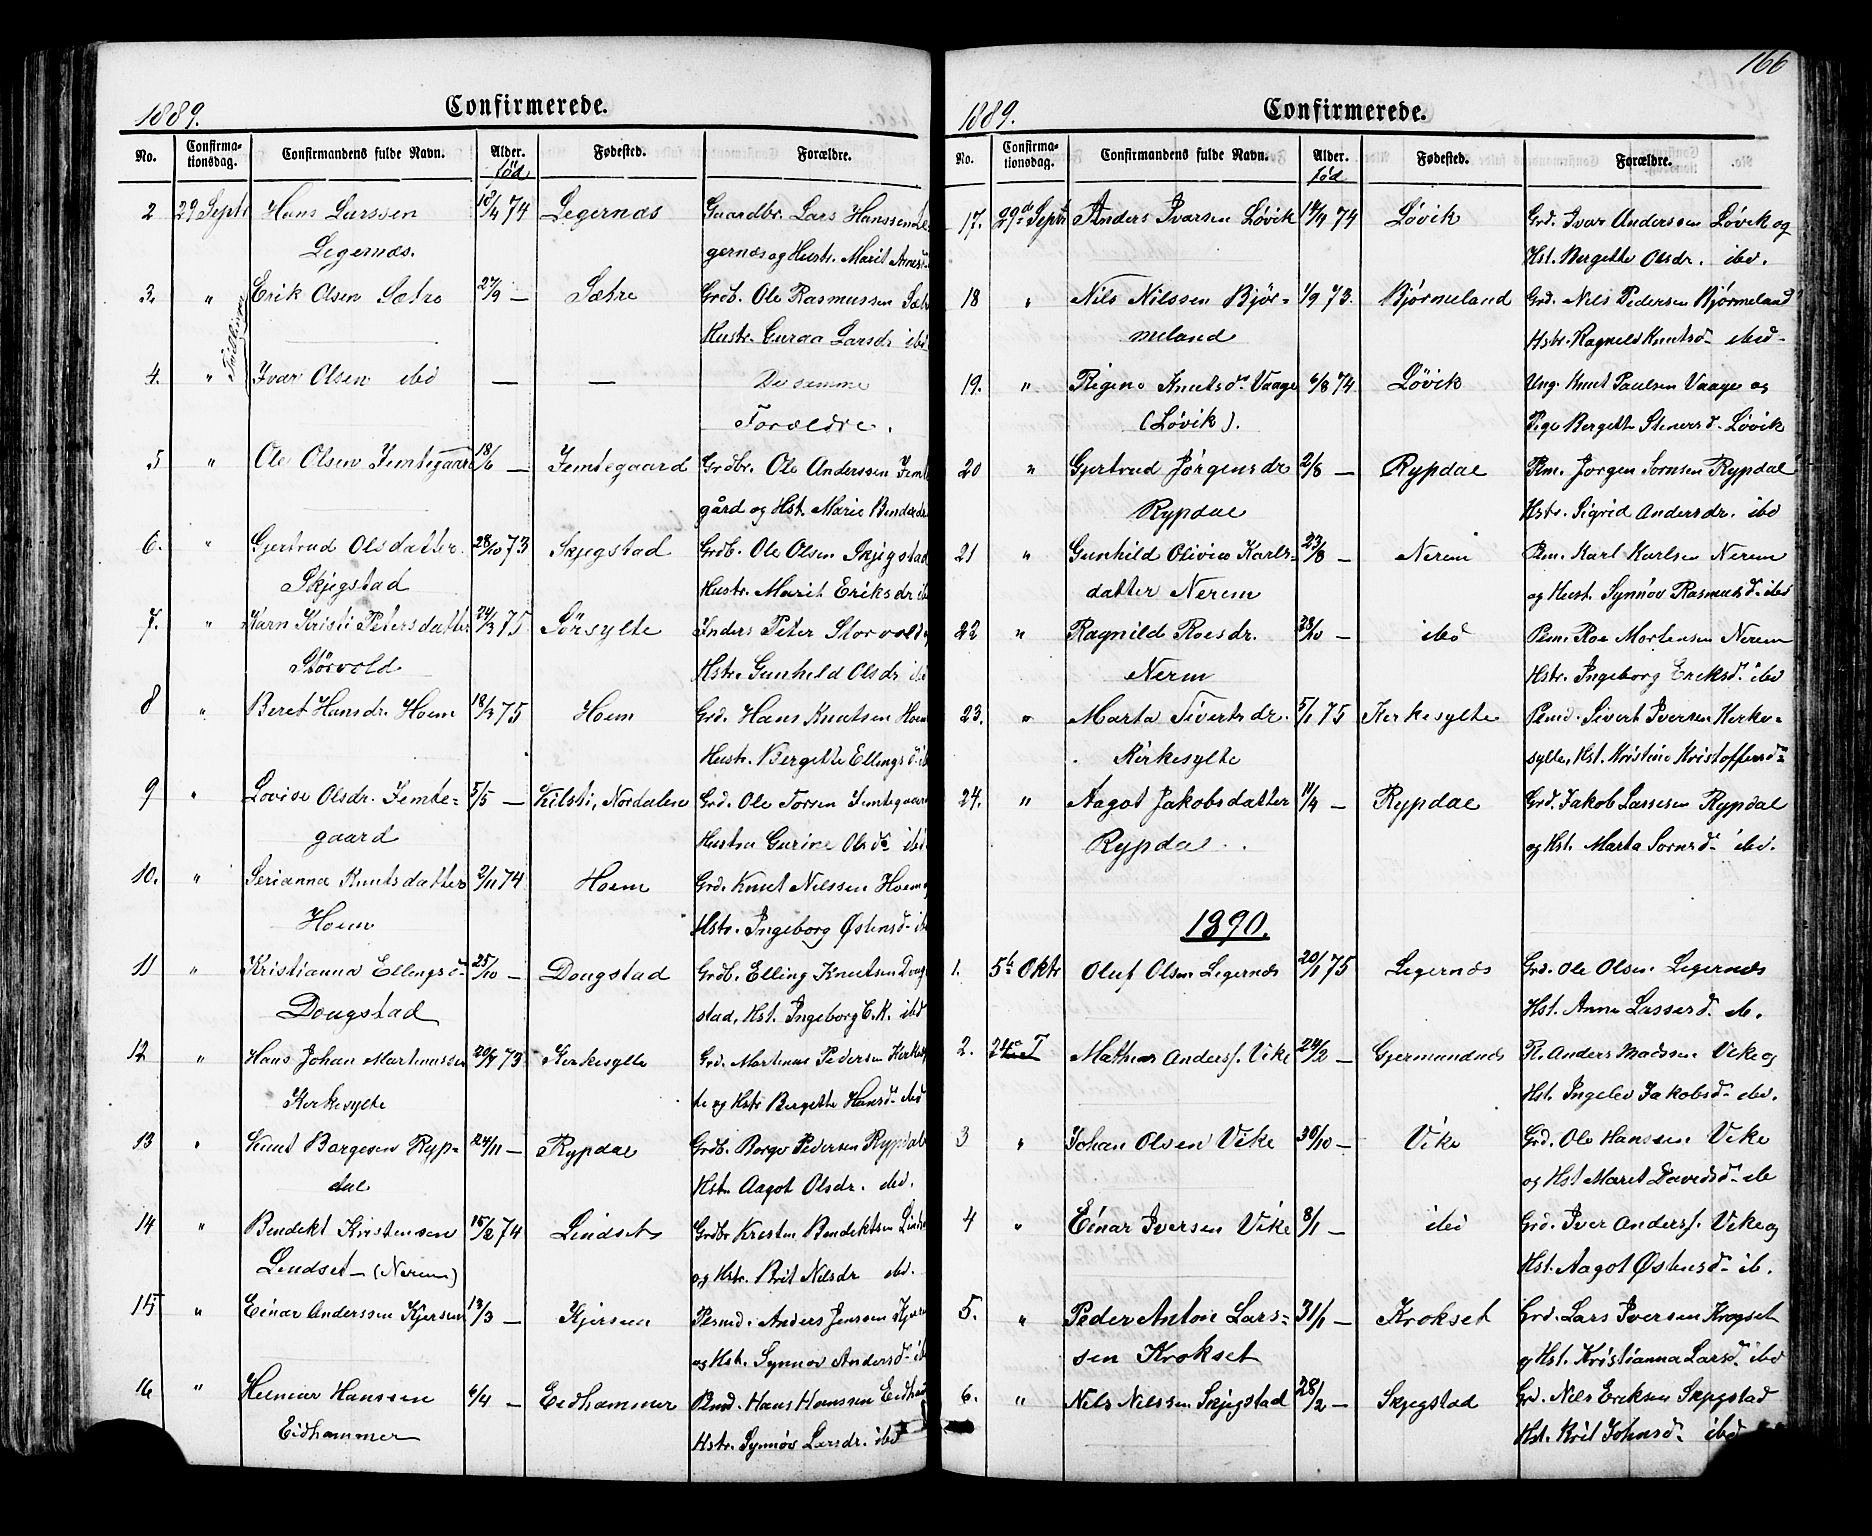 1889. Confirmerede.
No. Confirma-tionsdag. Confirmandens fulde Navn. Alder. Fødested. Forældre.
född
2 29 Septr Hans Larssen 10/4 74 Legernæs Gaardbr. Lars Hanssen Le-
Legernæs. gernæs og Hustr. Marit Annesd.
3. " Erik Olsen Sætre 27/9 — Sætre Grdb. Ole Rasmussen Sætre
Tvillinger
Hustr. Guraa Larsdr ibd
4. " Ivar Olsen ibd — — De samme
Forældre.
5 " Ole Olsen Jemtegaard 18/6 — Jemtegaard Grdbr. Ole Anderssen Jemte
gård og Hst. Marie Bendxdr
6. " Gjertrud Olsdatter 28/10 73 Skjegstad Grdb. Ole Olsen Skjegstad
Skjegstad Hustr. Marit Eriksdr ibd
7. " Karn Kristi Petersdatter 24/3 75 Sørsylte Inders Peter Storvold,
Størvold Hstr. Gunhild Olsdr ibd
8 " Beret Hansdr. Hoem 18/3 75 Hoem Grd. Hans Knutsen Hoem
Hustr. Bergitte Ellingsd. ib
9 " Lovise Olsdr. Jemte- 5/5 — Kilsti, Nordalen Grd. Ole Torsen Jemtegaard
gaard Hustru Gurine Olsd. ibd.
10. " Serianna Knutsdatter 2/11 74 Hoem Grd. Knut Nilssen Hoem
Hoem Hstr. Ingeborg Østensd. ib
11 " Kristianna Ellingsd. 25/10 — Dougstad Grdb. Elling Knutsen Doug
Dougstad stad, Hst. Ingeborg E.K. ibd
12 " Hans Johan Martinussen 20/7 73 Kirkesylte Grd. Martinus Pedersen Kirkesyl
Kirkesylte te og Hstr Bergette Hansd. ibd
13 " Knut Børgesen Ryp- 24/11 — Rypdal Grdb. Børge Pedersen Rypdal
dal Hstr. Aagot Olsdr. ibd.
14 " Bendekt Kristensen 15/2 74 Lindset Grdbr Kresten Bendektsen Lind
Lindset — (Nerem) og Hstr. Brit Nilsdr ibd.
15 " Einar Anderssen Kjersem 13/3 — Kjersem Plsmd. Anders Jenssen Kjersem
og Hst. Synnøv Andersd. ib
16 " Helmar Hanssen 6/4 — Eidhammer Plmd. Hans Hanssen Eidham
Eidhammer Hstr. Synnøv Larsdr. ibd
166
1889. Confirmerede.
No. Confirma-tionsdag. Confirmandens fulde Navn. Alder. Fødested. Forældre.
född
17. 29de Septr Anders Ivarsen Løvik 14/4 74 Løvik Grd. Ivar Anderssen Løvik og
Hst. Bergette Olsdr. ibd.
18 " Nils Nilssen Bjør- 1/9 73. Bjørmeland Grd. Nils Pedersen Bjørmeland
meland Hstr. Ragnild Knutsd. ibd.
19. " Regine Knutsdr Vaage 6/8 74 Løvik Ung. Knut Paulsen Vaage og
(Løvik). Pige Bergette Steners d. Løvik
20 " Gjertrud Jørgensdr 2/8 — Rypdal Plm. Jørgen Sørnsen Rypdal
Rypdal Hstr. Sigrid Andersdr. ibd
21 " Gunhild Olivia Karls- 23/8 — Nerem Plm. Karl Karlsen Nerem
datter Nerem og Hust. Synnøv Rasmusd. ibd
22 " Ragnild Roesdr. 28/10 — ibd Plm. Roe Mortensen Nerem
Nerem Hstr. Ingeborg Eriksd. ibd
23. " Marta Sivertsdr. 5/1 75 Kirkesylte Plmd. Sivert Iversen Kirke-
Kirkesylte sylte, Hst. Kristine Kristoffersd.
24. " Aagot Jakobsdatter 11/4 — Rypdal Grd. Jakob Lassesen Rypdal
Rypdal. og Hst. Marta Sørnsd. ibd.
1890.
1. 5t Oktr Oluf Olsen Legernæs 20/1 75 Legernæs Grd. Ole Olsen Legernæs
Hst. Anne Lassesd. ib.
2. Mathias Anders s. Vike 22/2 — Gjermundnæs Pl. Anders Madssen Vike og
Hst. Ingelev Jakobsd. ibd.
3 " Johan Olsen Vike 30/10 — Vike Grd. Ole Hanssen Vike
og Hst Maret Davidsd. ib
4 " Einar Iversen Vike 8/1 — ibd Grd. Iver Anders s. Vike og
Hst. Aagot Østensd. ib.
5. " Peder Anton Lars- 31/1 — Krokset Grd. Lars Iversen Krogset
sen Krokset og Hst. Kristianna Larsd. ibd
6. " Nils Nilssen Skjegstad 28/2 — Skjegstad Grd. Nils Eriksen Skjegstad
Hst. Brit Johnsd. ibd